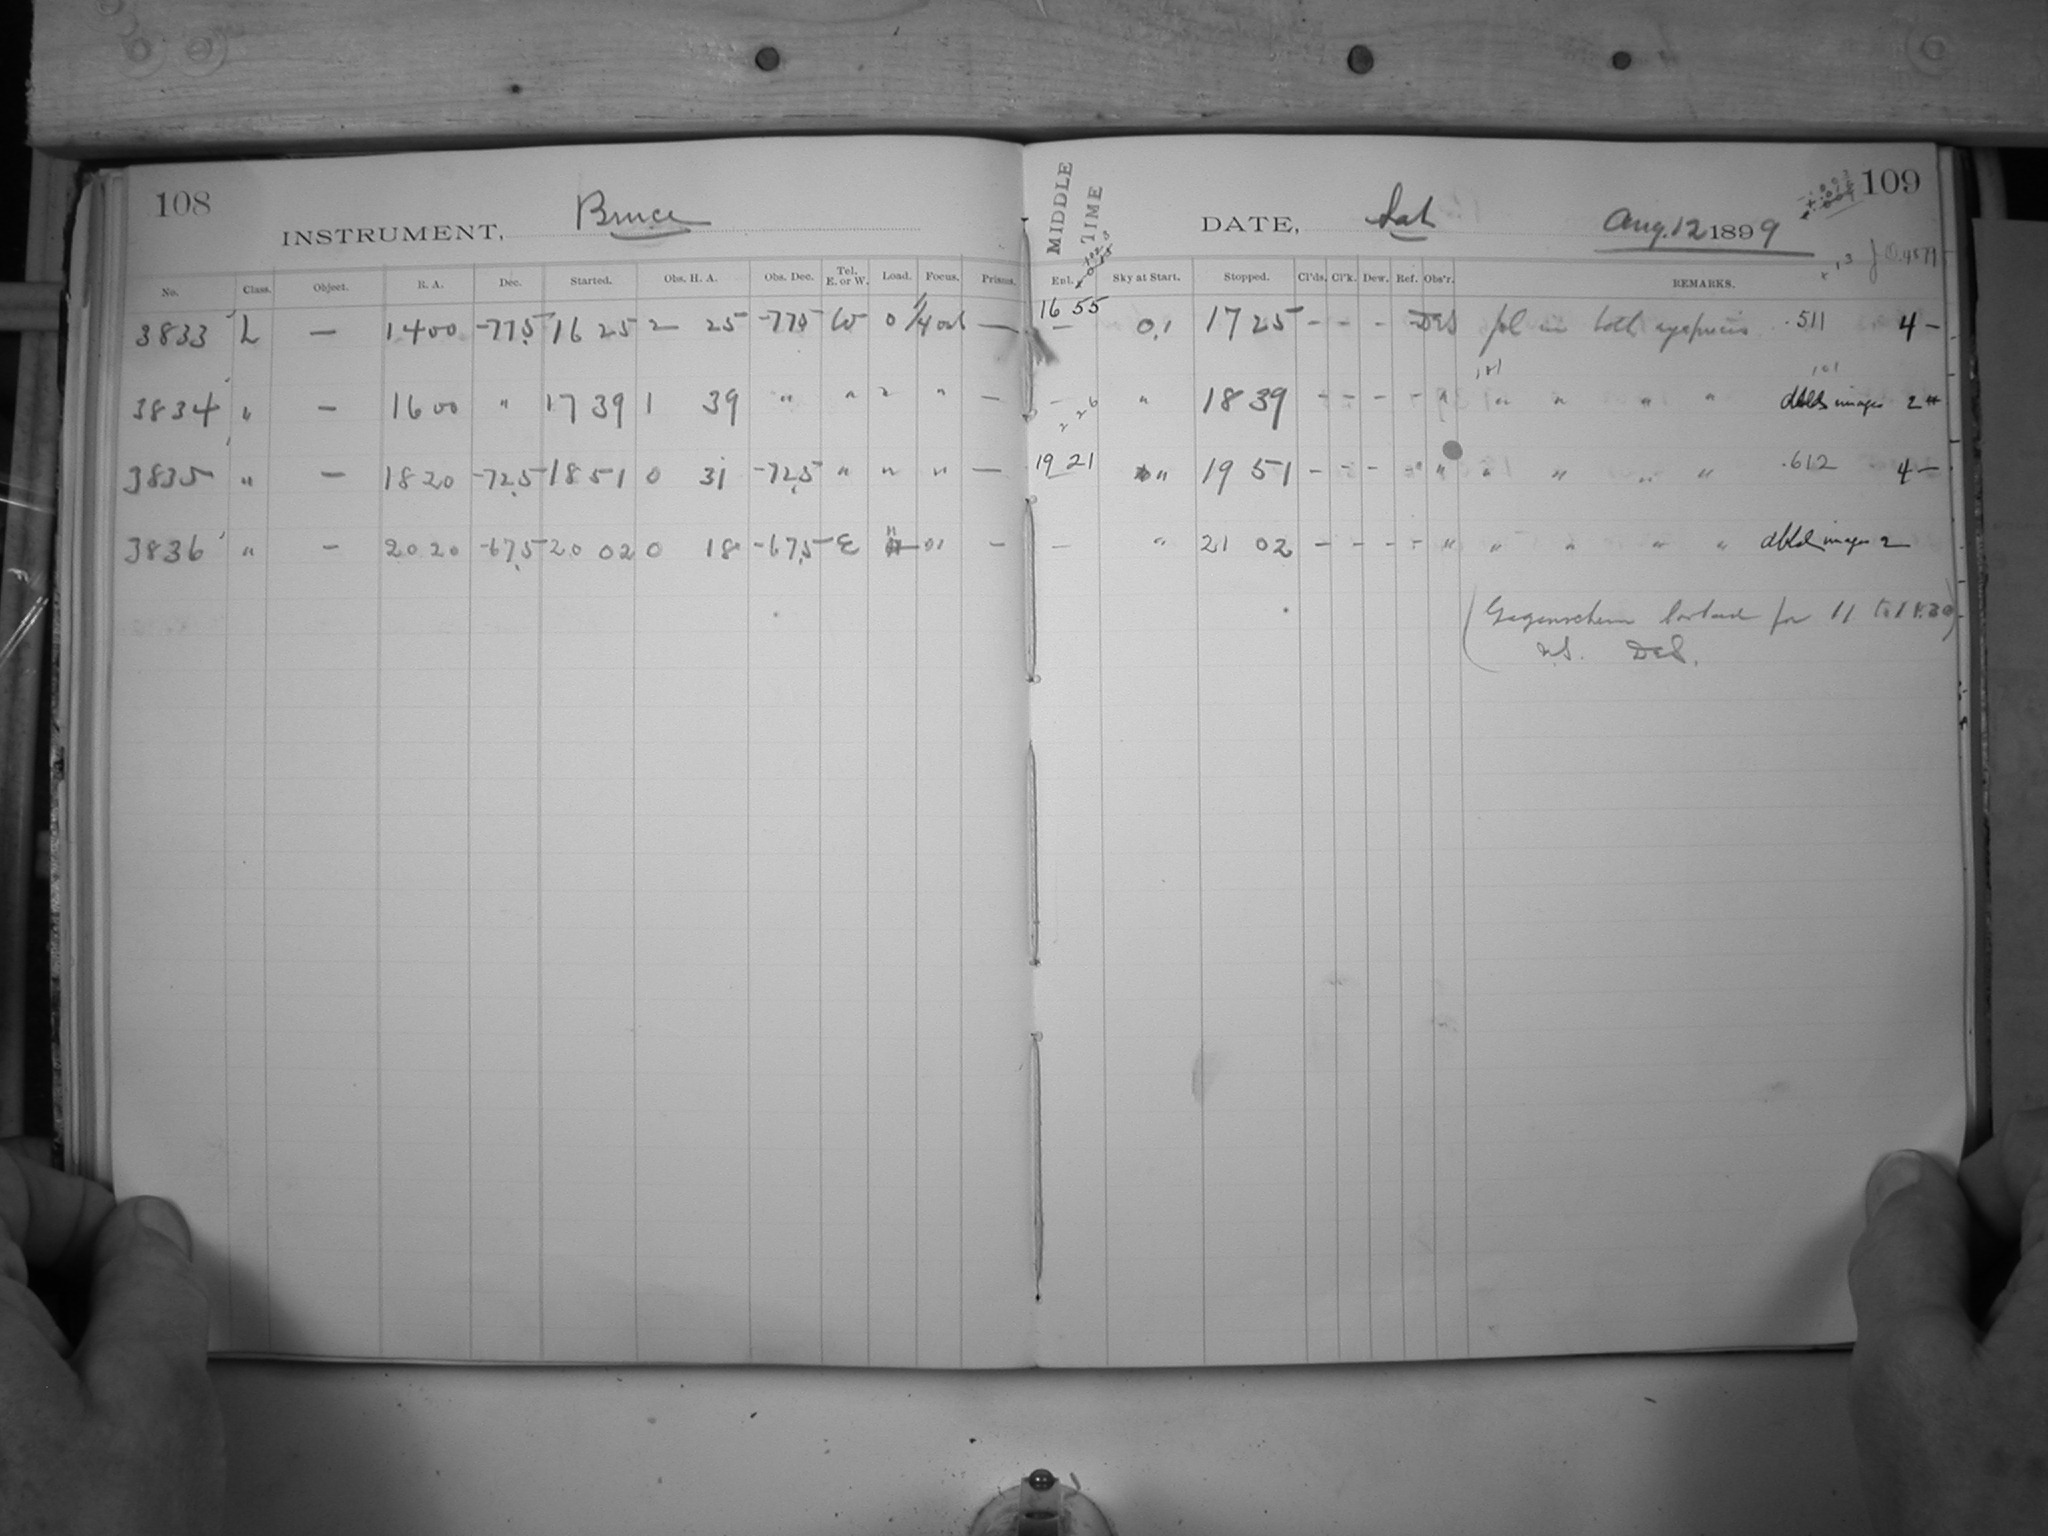 108
INSTRUMENT, Bruce
No. Class. Object. R. A. Dec. Started. Obs. H. A. Obs. Dec. Tel. E. or W. Load. Focus. Prisms.
3833 L — 14 00 -77.5 16 25 2 25 -77.5 W 0 1/4 out —
3834 " — 16 00 " 17 39 1 39 " " " " —
3835 " — 18 20 -72.5 18 51 0 31 -72.5 " " " —
3836 " — 20 20 -67.5 20 02 0 18 -67.5 E " " —
109
MIDDLE TIME
DATE, Sat Aug. 12 1899
Enl. Sky at Start. Stopped. Cl'ds. Cl'k. Dew. Ref. Obs'r. REMARKS.
16 55 — 0.1 17 25 - - - - DES fol in both eyepieces .511 4 -
— " 18 39 - - - - " " " " " images 2
19 21 — " 19 51 - - - - " " " " " .612 4 -
— " 21 02 - - - - " " " " " dbld images 2
(Gegenschein looked for 11 to 11.30)
DES.